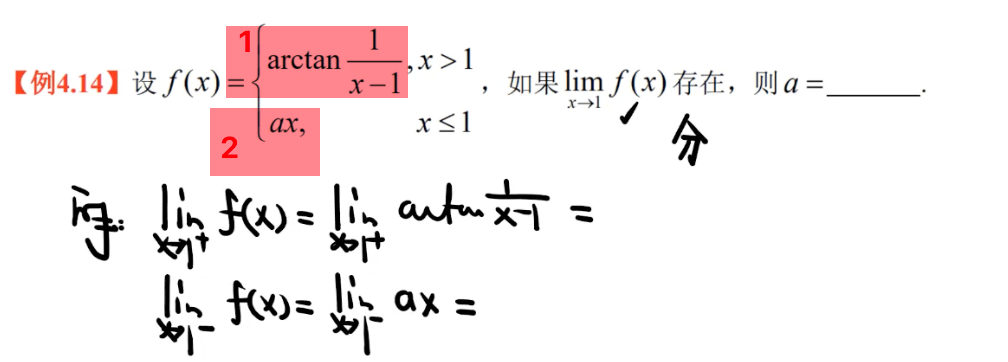 【例4.14】设 f(x) = { 1 arctan 1/(x−1), x > 1 ，如果 lim x→1 f(x) 存在，则 a = ______.
2 ax, x ≤ 1
✓ 分
lim x→1⁺ f(x) = lim x→1⁺ arctan 1/(x−1) =
lim x→1⁻ f(x) = lim x→1⁻ ax =